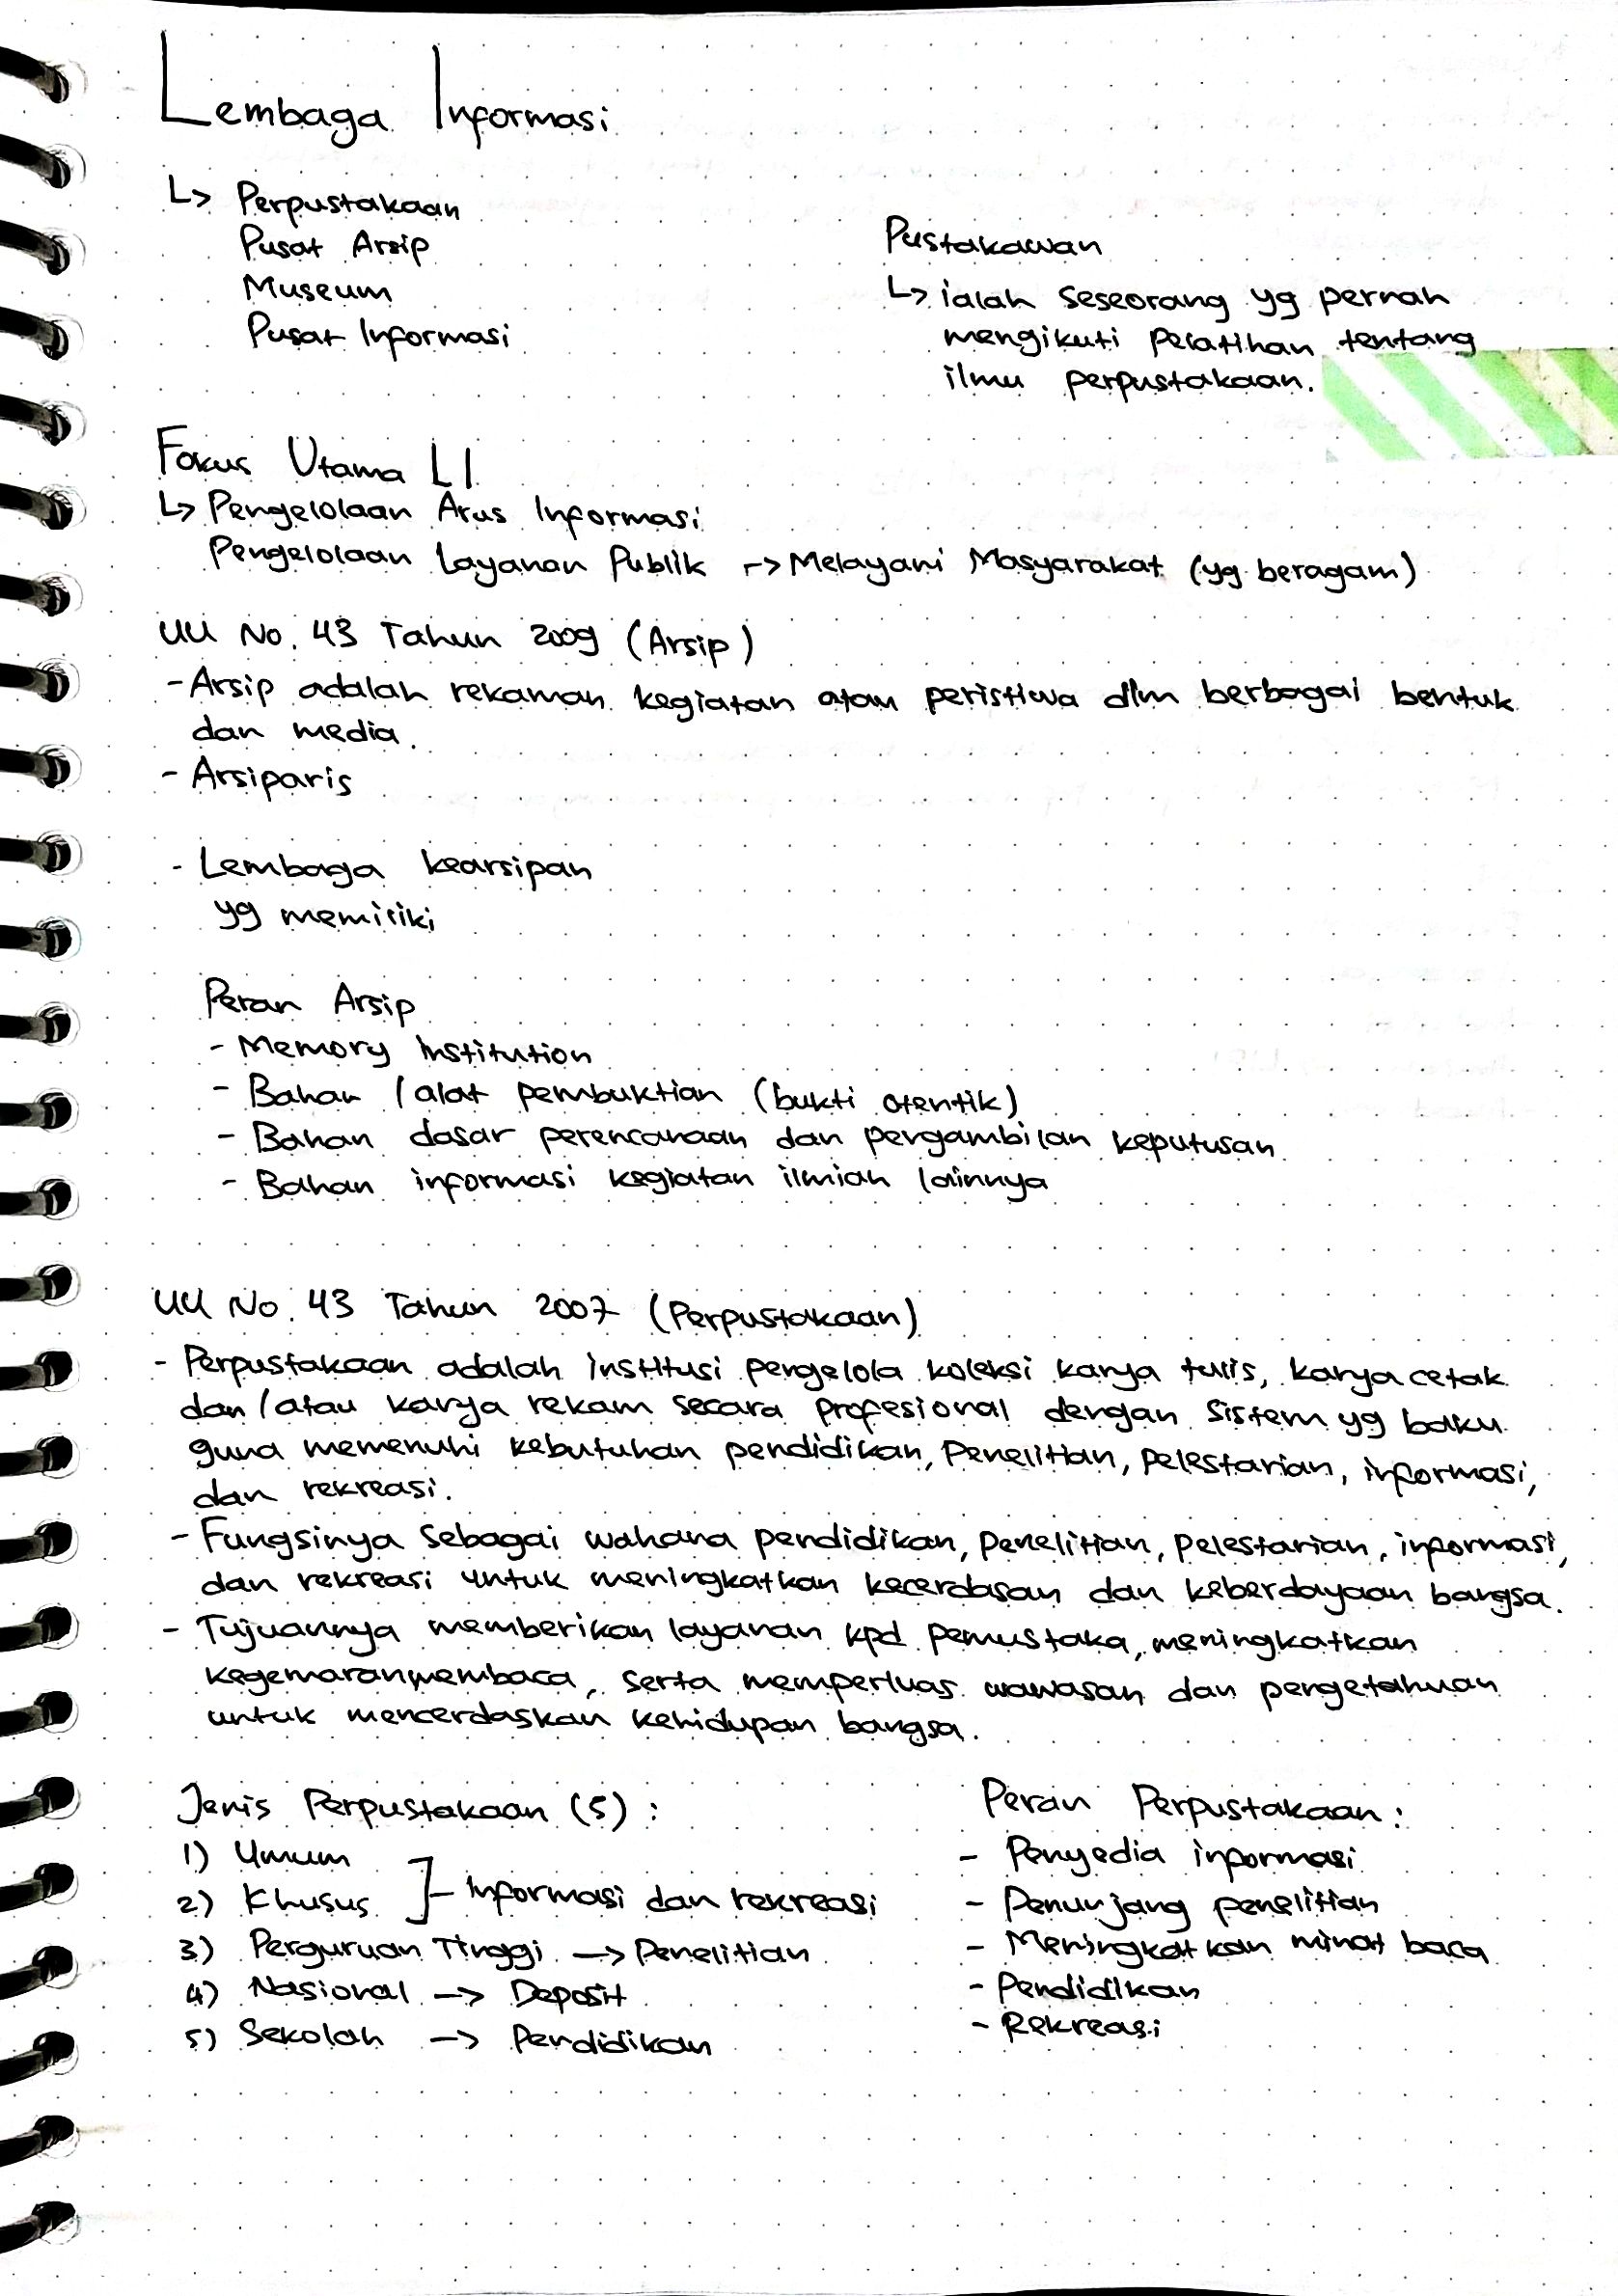 Lembaga Informasi
↳ Perpustakaan
Pusat Arsip
Museum
Pusat Informasi
Pustakawan
↳ ialah seseorang yg pernah
mengikuti pelatihan tentang
ilmu perpustakaan.
Fokus Utama LI
↳ Pengelolaan Arus Informasi
Pengelolaan Layanan Publik → Melayani Masyarakat (yg beragam)
UU No. 43 Tahun 2009 (Arsip)
- Arsip adalah rekaman kegiatan atau peristiwa dlm berbagai bentuk
dan media.
- Arsiparis
- Lembaga kearsipan
yg memiliki
Peran Arsip
- Memory Institution
- Bahan / alat pembuktian (bukti otentik)
- Bahan dasar perencanaan dan pengambilan keputusan
- Bahan informasi kegiatan ilmiah lainnya
UU No. 43 Tahun 2007 (Perpustakaan)
- Perpustakaan adalah institusi pengelola koleksi karya tulis, karya cetak
dan/atau karya rekam secara profesional dengan sistem yg baku
guna memenuhi kebutuhan pendidikan, penelitian, pelestarian, informasi,
dan rekreasi.
- Fungsinya sebagai wahana pendidikan, penelitian, pelestarian, informasi,
dan rekreasi untuk meningkatkan kecerdasan dan keberdayaan bangsa.
- Tujuannya memberikan layanan kpd pemustaka, meningkatkan
kegemaran membaca, serta memperluas wawasan dan pengetahuan
untuk mencerdaskan kehidupan bangsa.
Jenis Perpustakaan (5) :
1) Umum
2) Khusus ]- Informasi dan rekreasi
3) Perguruan Tinggi → Penelitian
4) Nasional → Deposit
5) Sekolah → Pendidikan
Peran Perpustakaan :
- Penyedia informasi
- Penunjang penelitian
- Meningkatkan minat baca
- Pendidikan
- Rekreasi